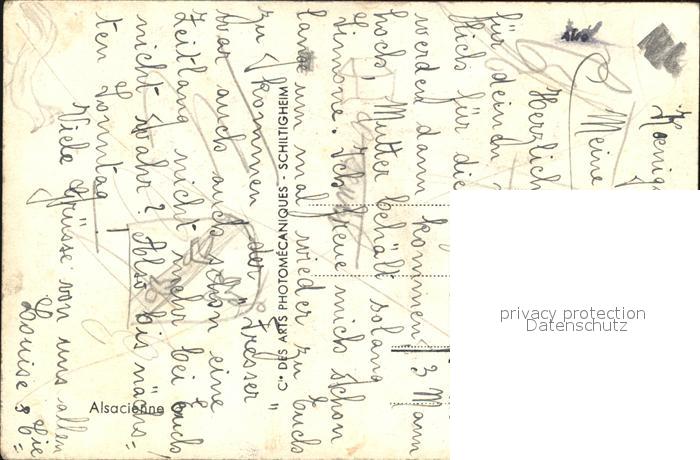 Koenigs
Meine
Herzlich
für deinen
für die
werden dann kommen 3 Mann
hoch, Mutter behält solang
Simone. Ich freue mich schon
lange um mal wieder zu Euch
zu kommen der "Fresser"
war auch auch schon eine
Zeitlang nicht mehr bei Euch,
nicht wahr? Also bis nächs=
ten Sonntag!
Viele Grüsse von uns allen
Louise & Cie=
Cie DES ARTS PHOTOMÉCANIQUES - SCHILTIGHEIM
Alsacienne
privacy protection
Datenschutz